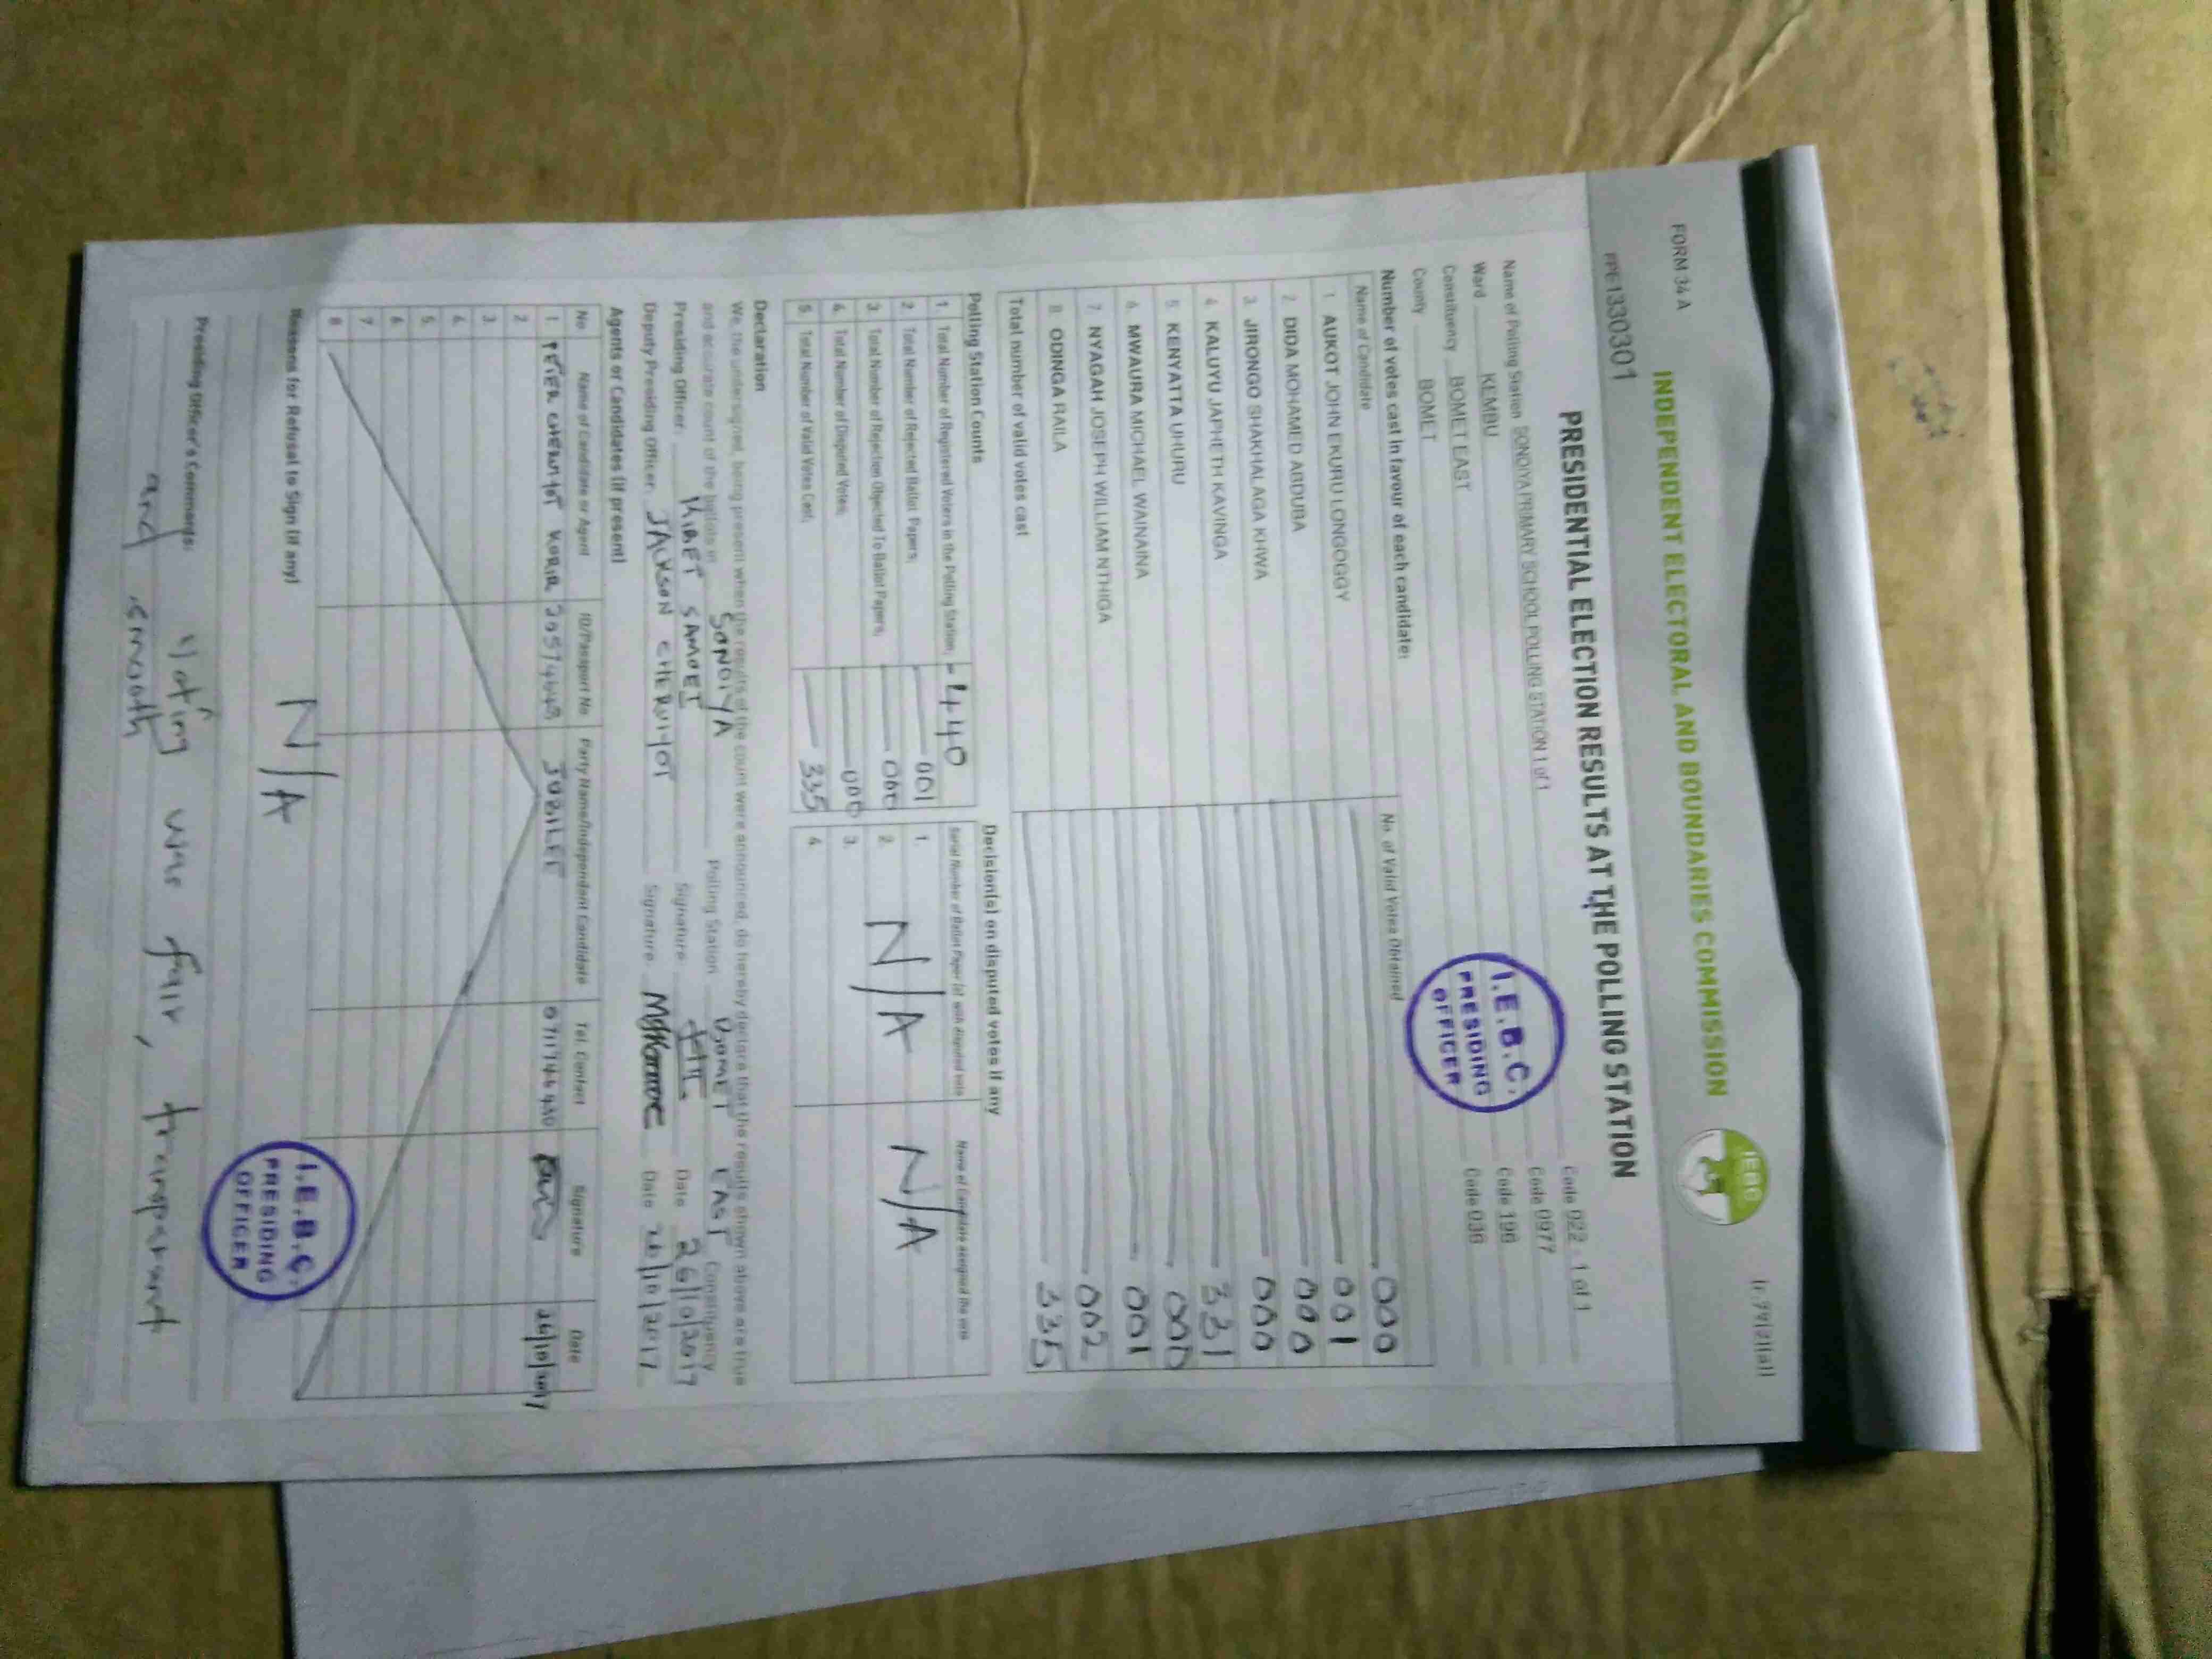 FORM 34 A
(r.79(2)(a))
INDEPENDENT ELECTORAL AND BOUNDARIES COMMISSION
IEBC
PPE1330301
PRESIDENTIAL ELECTION RESULTS AT THE POLLING STATION
Name of Polling Station SONOIYA PRIMARY SCHOOL POLLING STATION 1 of 1 Code 022 - 1 of 1
Ward KEMBU Code 0977
Constituency BOMET EAST Code 196
County BOMET Code 036
I.E.B.C.
PRESIDING
OFFICER
Number of votes cast in favour of each candidate:
Name of Candidate No. of Valid Votes Obtained
1. AUKOT JOHN EKURU LONGOGGY 000
2. DIDA MOHAMED ABDUBA 001
3. JIRONGO SHAKHALAGA KHWA 000
4. KALUYU JAPHETH KAVINGA 000
5. KENYATTA UHURU 331
6. MWAURA MICHAEL WAINAINA 000
7. NYAGAH JOSEPH WILLIAM NTHIGA 001
8. ODINGA RAILA 002
Total number of valid votes cast 335
Polling Station Counts
1. Total Number of Registered Voters in the Polling Station; 440
2. Total Number of Rejected Ballot Papers; 001
3. Total Number of Rejection Objected To Ballot Papers; 000
4. Total Number of Disputed Votes; 000
5. Total Number of Valid Votes Cast; 335
Decision(s) on disputed votes if any
Serial Number of Ballot Paper (s) with disputed vote Name of Candidate assigned the vote
1.
2. N/A N/A
3.
4.
Declaration
We, the undersigned, being present when the results of the count were announced, do hereby declare that the results shown above are true
and accurate count of the ballots in SONOIYA Polling Station BOMET EAST Constituency
Presiding Officer: KIBET SAMOEI Signature Date 26/10/2017
Deputy Presiding Officer: JACKSON CHERUIYOT Signature Date 26/10/2017
Agents or Candidates (if present)
No Name of Candidate or Agent ID/Passport No Party Name/Independent Candidate Tel. Contact Signature Date
1. PETER CHERUIYOT KORIR JUBILEE 26/10/2017
2.
3.
4.
5.
6.
7.
8.
Reasons for Refusal to Sign (if any)
N/A
I.E.B.C.
PRESIDING
OFFICER
Presiding Officer's Comments: Voting was fair, transparent
and smooth